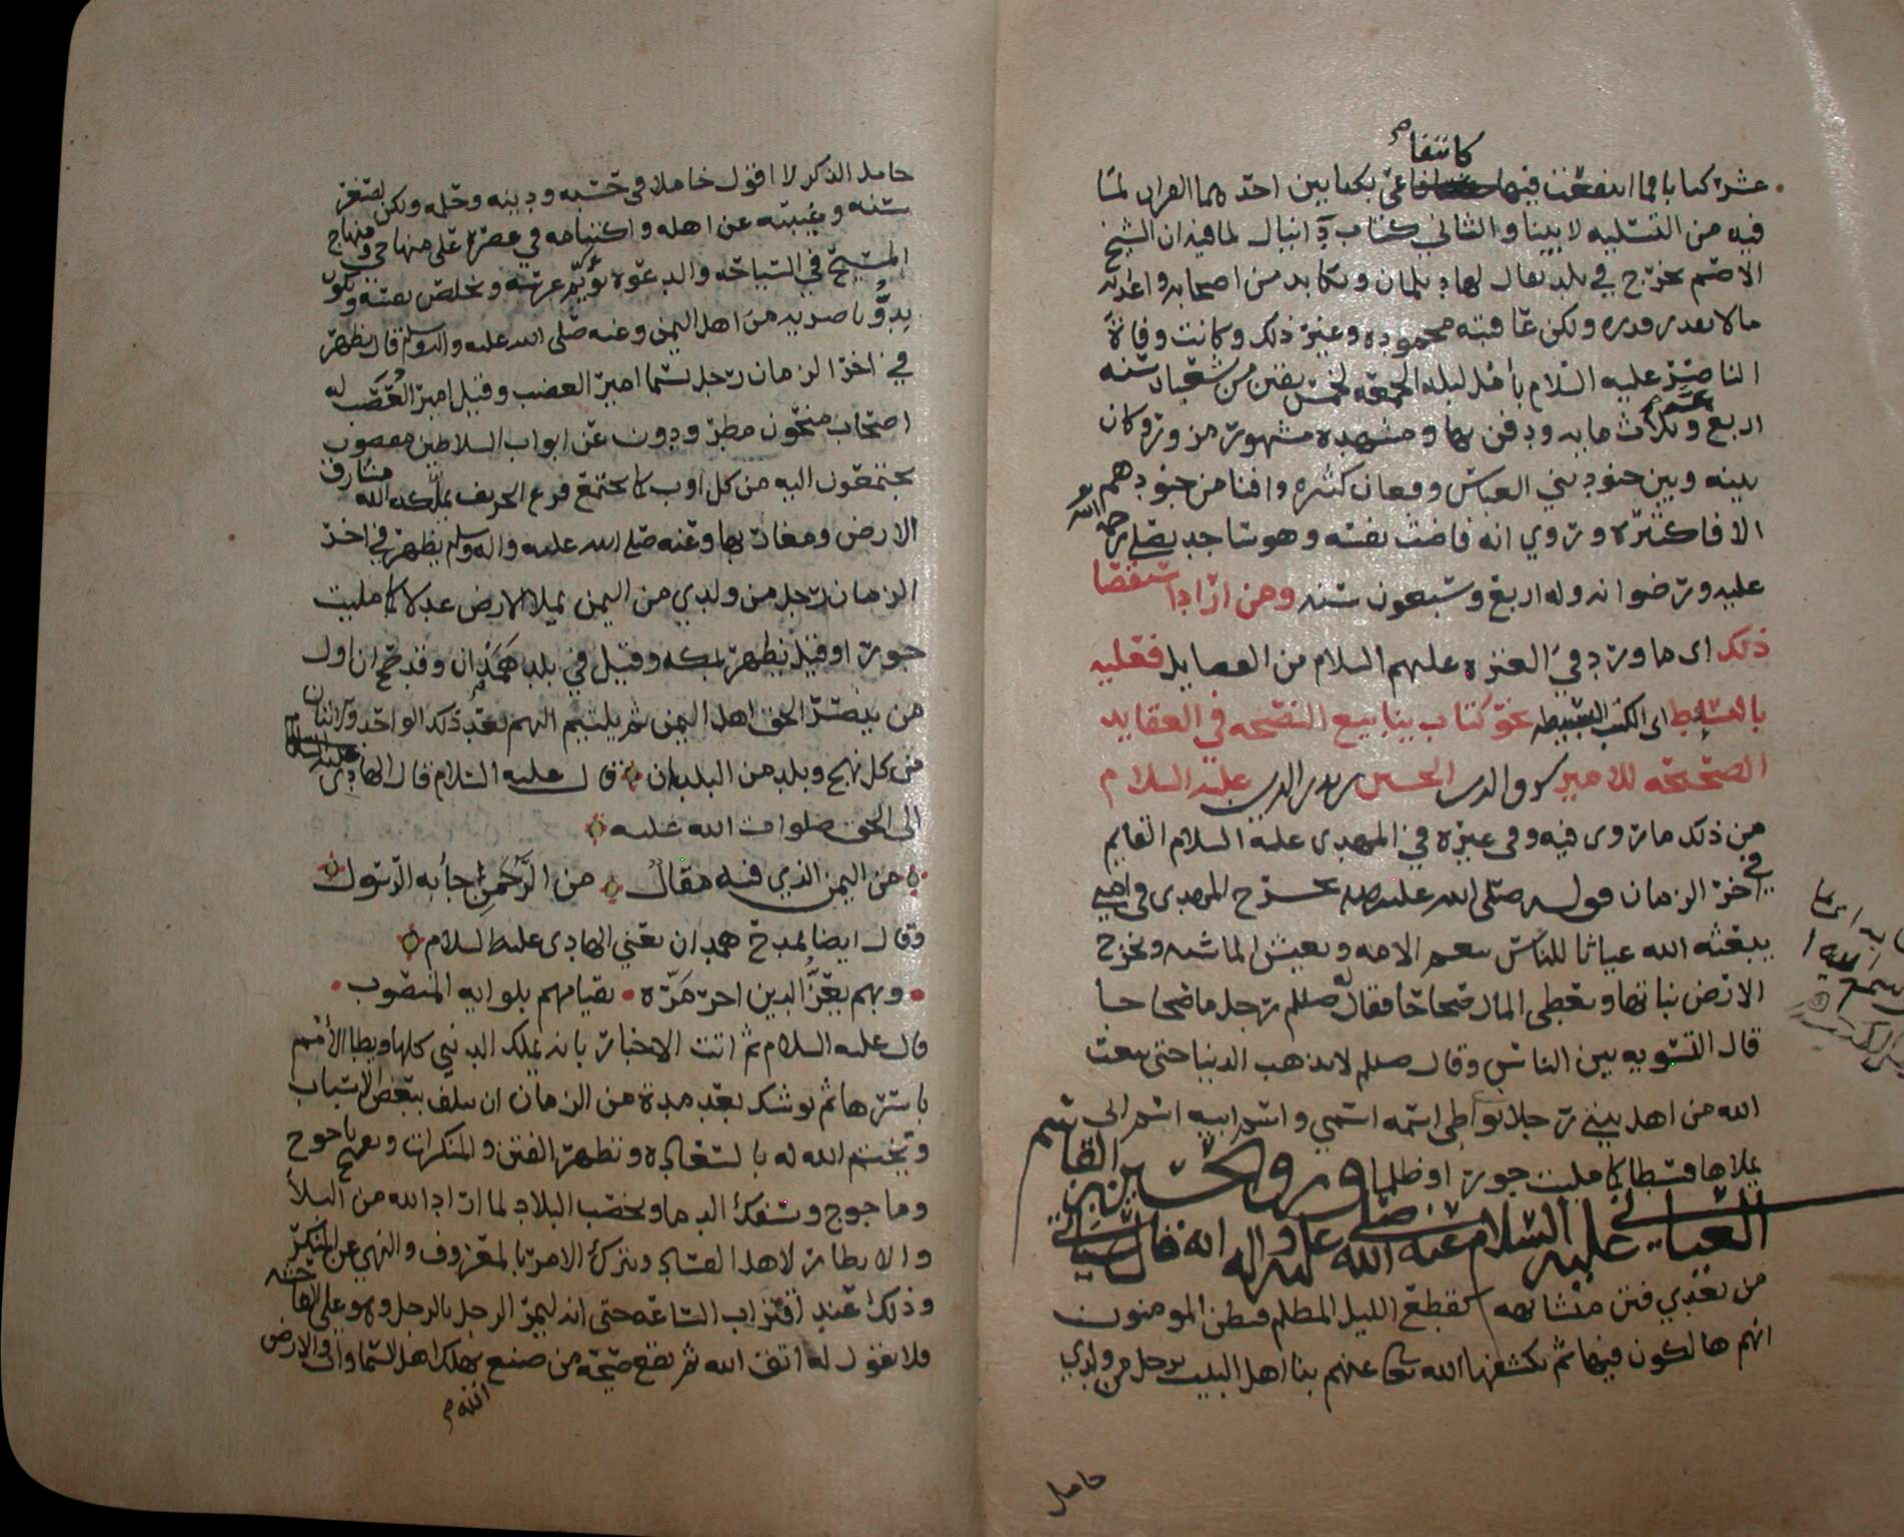 كانتفا
عشرة كتابا فما انتفعت فيها عي بكتابين احدهما القران لما
فيه من التسليه لابينا والثاني كتاب دانيال لما فيه ان الشيخ
الاصم يخرج في بلد يقال لها ديلمان ويكابد من اصحابه واعدائه
مالا يقدر قدره ولكن عاقبته محموده وغير ذلك وكانت وفاة
الناصر عليه السلام بأمل ليلة الجمعه لخمس بقين من شعبان سنه
اربع وثلاث مايه ودفن بها ومشهده مشهور مزور وكان
بينه وبين جنود بني العباس وقعات كثيره وافنا من جنودهم
الافا كثيره وروي انه فاضت نفسه وهو ساجد يصلي رحمة الله
عليه ورضوانه وله اربع وسبعون سنه ومن اراد استقصا
ذلك اي ما ورد في العتره عليهم السلام من الفضايل فعليه
بالبسايط اي الكتب البسيطه نحو كتاب ينابيع النصيحه في العقايد
الصحيحه للامير الحسين بن بدر الدين عليه السلام
من ذلك ما روى فيه وفي غيره في المهدي عليه السلام القايم
في اخر الزمان قوله صلى الله عليه يخرج المهدي في امتي
يبعثه الله غياثا للناس تنعم الامه وتعيش الماشيه وتخرج
الارض نباتها ويعطي المال صحاحا فقال له صللم رجل ما صحاحا
قال التسويه بين الناس وقال صللم لا تذهب الدنيا حتى يبعث
الله من اهل بيتي رجلا يواطي اسمه اسمي واسم ابيه اسم ابي
يملاها قسطا كما مليت جورا وظلما وروا الحسين بن القاسم
العياني عليه السلام عنه صلى الله عليه واله انه قال سياتي
من بعدي فتن متشابهه كقطع الليل المظلم فيظن المومنون
انهم هالكون فيها ثم يكشفها الله تعالى عنهم بنا اهل البيت برجل من ولدي
حامل
حامل الذكر لا اقول خاملا في حسبه ودينه وحلمه ولكن لصغر
سنه وغيبته عن اهله واكتتامه في عصره على منهاجي ومنهاج
المسيح في السياحه والدعوه يؤيم عرسه ويخلص نفسه ويكون
بدؤ ناصريه من اهل اليمن وعنه صلى الله عليه واله وسلم قال يظهر
في اخر الزمان رجل يسما امير الغضب وقيل امير العصب له
اصحاب منحون مطرودون عن ابواب السلاطين مغصوب
يجتمعون اليه من كل اوب كما يجتمع قزع الخريف يملكه الله مشارق
الارض ومغاربها وعنه صلى الله عليه واله وسلم يظهر في اخر
الزمان رجل من ولدي من اليمن يملا الارض عدلا كما مليت
جورا وقيل يظهر بمكه وقيل في بلد همدان وقد صح ان اول
من ينصر الحق اهل اليمن ثم يلتيم اليهم بعد ذلك الواحد والاثنان
من كل نهج وبلد من البلدان قال عليه السلام قال الهادي عليه السلام
الى الحق صلوات الله عليه
من اليمن الذي فيه مقال من الرحمن جأ به الرسول
وقال ايضا يمدح همدان يعني الهادي عليه السلام
وبهم يعز الدين اخر مره بقيامهم بلوايه المنصوب
قال عليه السلام ثم اتت الاخبار بانه يملك الدنيي كلها ويطا الأمم
باسرها ثم يوشك بعد مدة من الزمان ان يتلف ببعض الاسباب
ويختم الله له بالسعاده وتظهر الفتن والمنكرات ويخرج ياجوج
وماجوج وتسفك الدما ويخصب البلاد لما اراد الله من البلأ
والانظار لاهل الفساد ويترك الامر بالمعروف والنهي عن المنكر
وذلك عند اقتراب الساعه حتى انه ليمر الرجل بالرجل وهو على الفاحشه
فلا يقول له اتق الله ثم يقع صيحة من صنع يهلك اهل السماوات والارض
الله